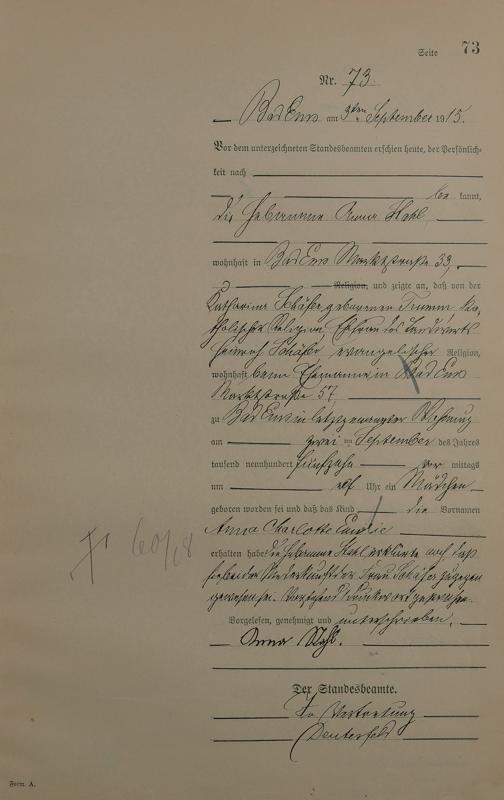 Seite 73
Nr. 73.
Bad Ems am 3ten September 1915.
Vor dem unterzeichneten Standesbeamten erschien heute, der Persönlich-
keit nach
be kannt,
die Hebamme Anna Stahl
wohnhaft in Bad Ems Marktstraße 33,
Religion, und zeigte an, daß von der
Katharina Schäfer geborenen Ka-
tholischer Religion Ehefrau des Landwirts
Heinrich Schäfer evangelischer Religion,
wohnhaft beim Ehemanne in Bad Ems
Marktstraße 57,
zu Bad Ems in letztgenannter Wohnung
am zwei ten September des Jahres
tausend neunhundert fünfzehn vor mittags
um elf Uhr ein Mädchen
geboren worden sei und daß das Kind die Vornamen
Anna Charlotte Emilie
erhalten habe. die Hebamme Stahl erklärte noch daß
sie bei der Niederkunft der Frau Schäfer zugegen
gewesen sei. Vorstehend Druckwort gestrichen.
Vorgelesen, genehmigt und unterschrieben.
Anna Stahl.
Der Standesbeamte.
In Vertretung
60/18
Form A.